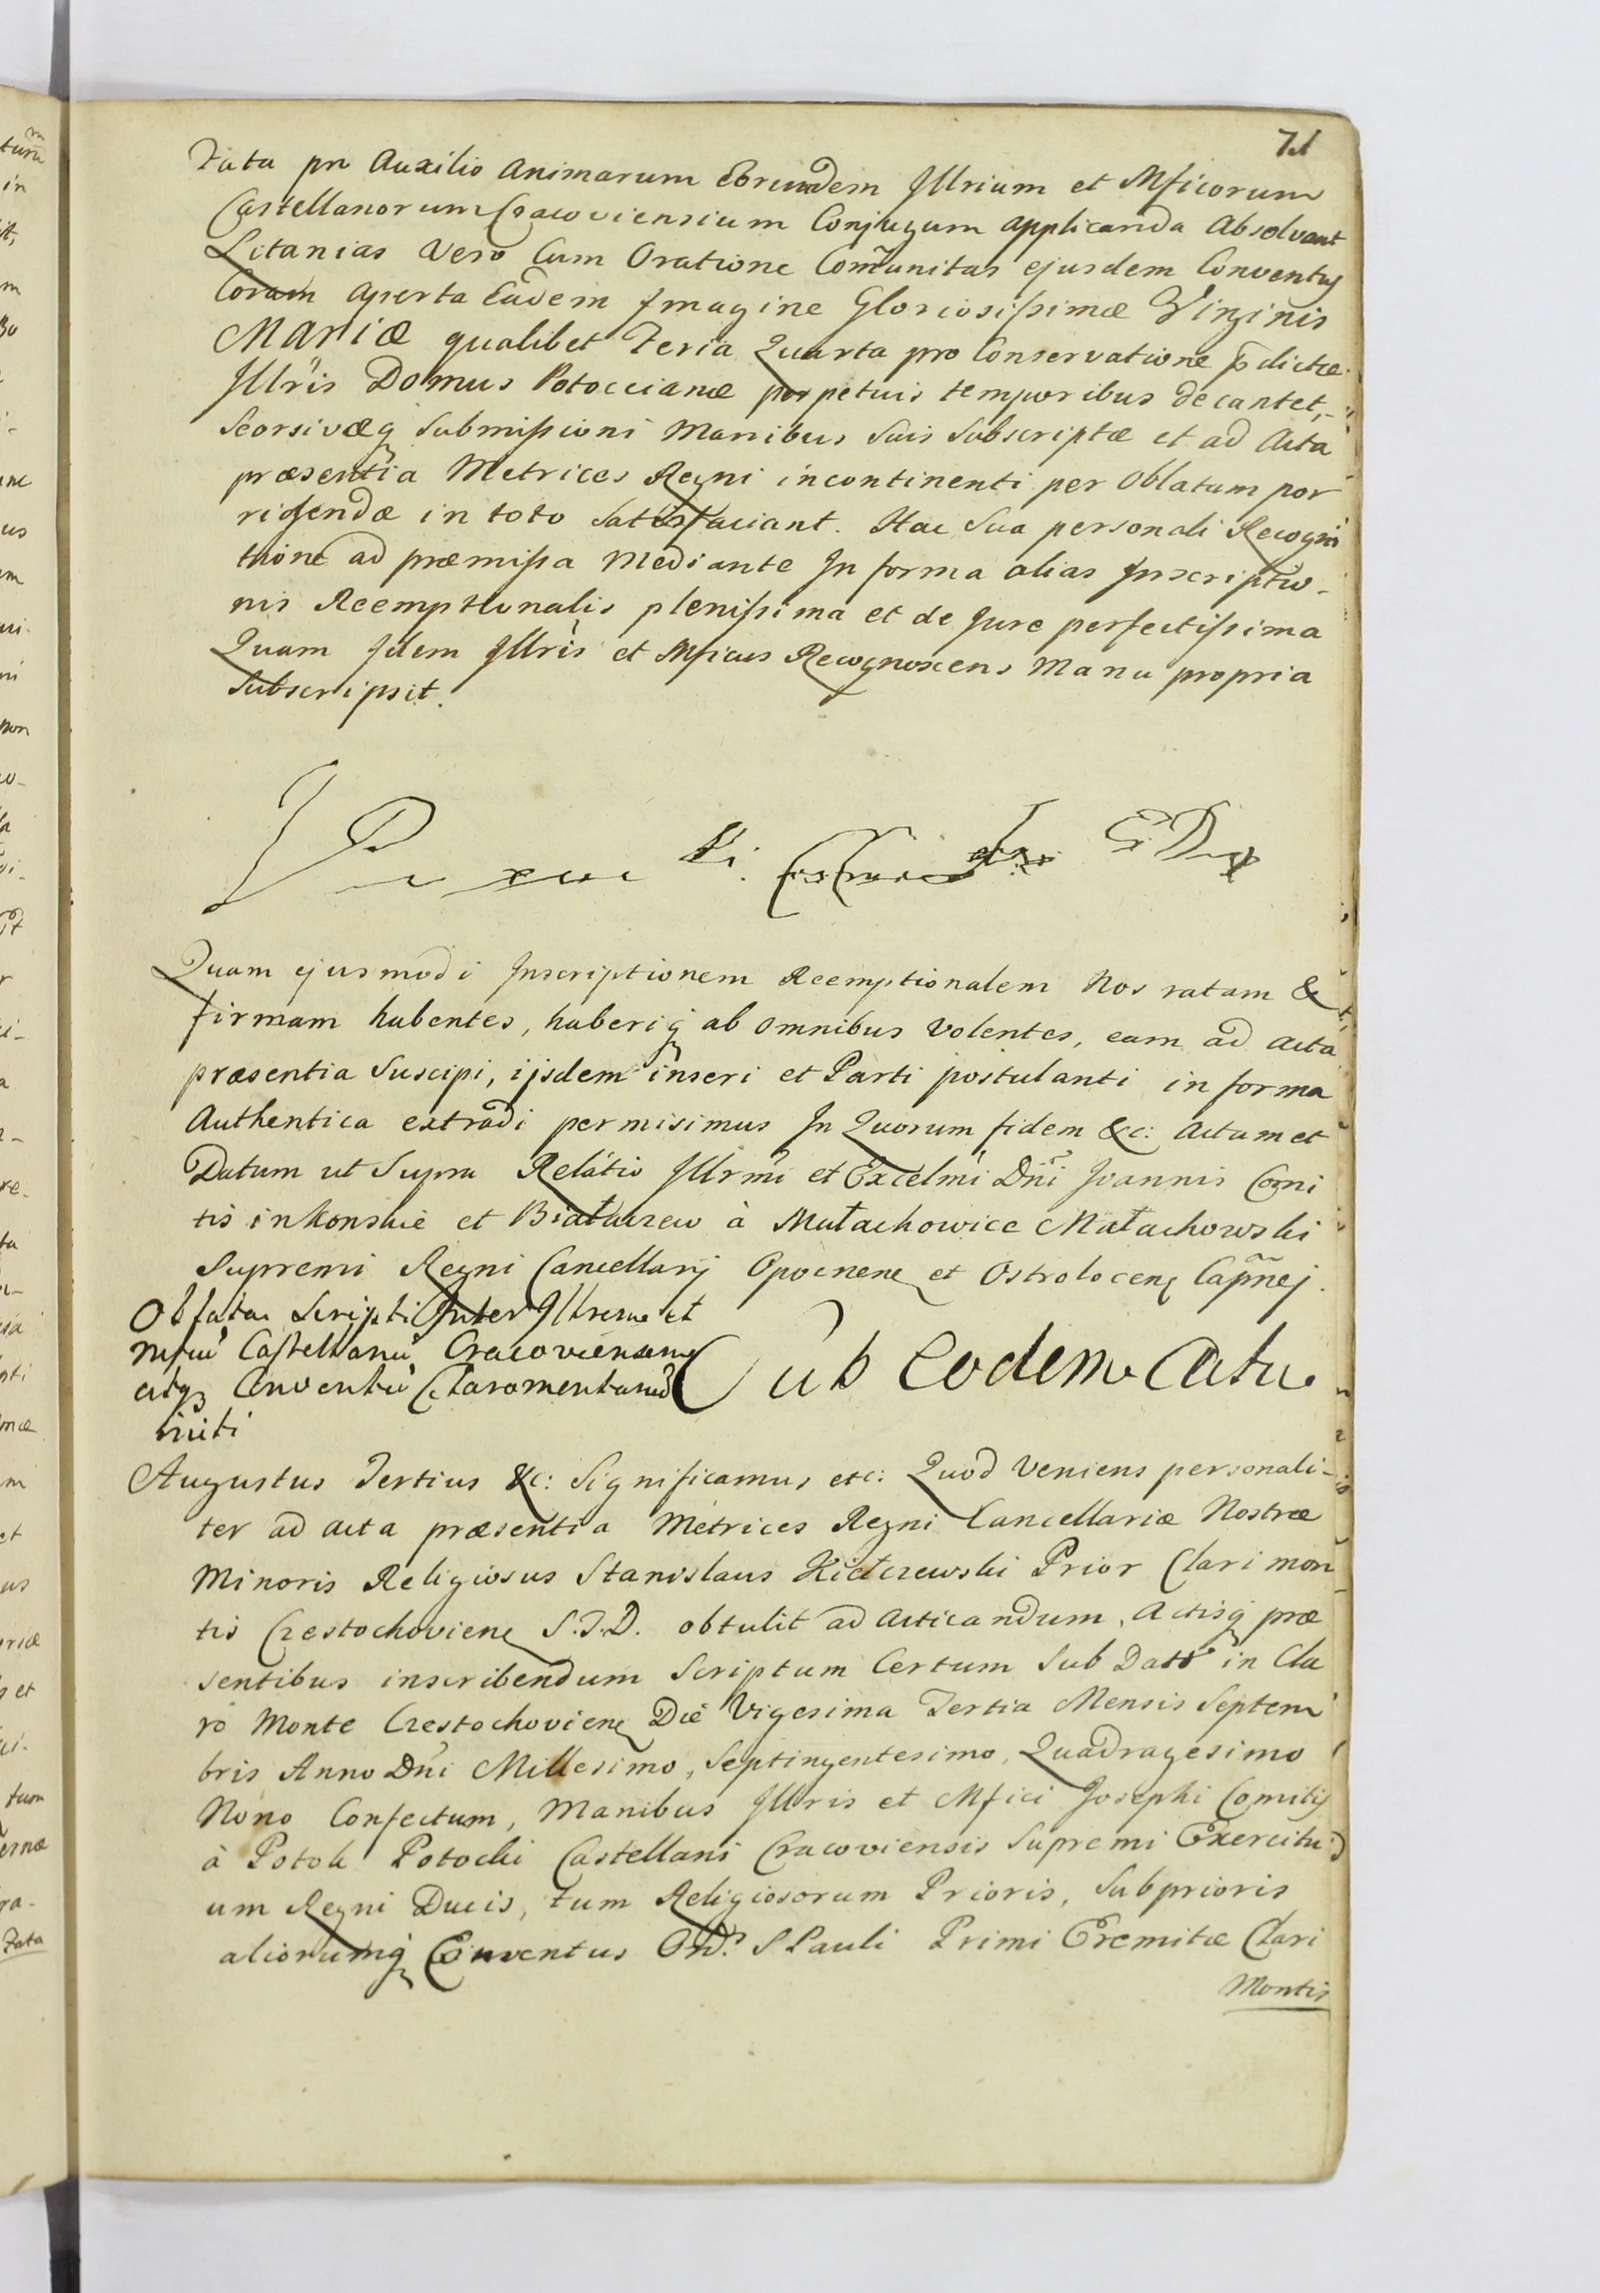 71
tata pro Auxilio Animarum Eorundem Jllrium et Mficorum
Castellanorum Cracoviensium Conjugum applicanda Absolvant
Litanias Vero Cum Oratione Com̃unitas ejusdem Conventus
Coram aperta Eadem Jmagine Gloriosissimæ Virginis
MARIÆ qualibet Feria Quarta pro Conservatione p̃dictæ
Jllris Domus Potoccianæ perpetuis temporibus decantet,
Seorsivæq Submissioni Manibus Suis Subscriptæ et ad Acta
præsentia Metrices Regni incontinenti per Oblatam por
rigendæ in toto Satisfaciant. Hac Sua personali Recogni
tione ad præmissa Mediante Jn forma alias Jnscriptio-
nis Reemptionalis plenissima et de Jure perfectissima
Quam Jdem Jllris et Mficus Recognoscens Manu propria
Subscripsit.
Quam ejusmodi Jnscriptionem Reemptionalem Nos ratam &
firmam habentes, haberiq ab omnibus Volentes, eam ad Acta
præsentia Suscipi, ijsdem inseri et Parti postulanti in forma
Authentica extradi permisimus Jn Quorum fidem &c: Actum et
Datum ut Supra Relatio Jllrmi et Excelmi Dñi Joannis Comi
tis in Konskie et Białaczew à Małachowice Małachowski
Supremi Regni Cancellarij Opocnen et Ostrolocen Cap̃nej.
Oblata Scripti Jnter Jllrem et
mficũ Castellanũ Cracoviensem
atq Conventũ Claromontanũ
initi
Sub Eodem Actu
Augustus Tertius &c: Significamus etc: Quod Veniens personali-
ter ad acta præsentia Metrices Regni Cancellariæ Nostræ
Minoris Religiosus Stanislaus Kiełczewski Prior Clari mon
tis Czestochovien S.T.D. obtulit ad Acticandum, Actisq præ
sentibus inscribendum Scriptum Certum Sub Dato in Cla
ro Monte Czestochovien Die Vigesima Tertia Mensis Septem
bris Anno Dñi Millesimo, Septingentesimo, Quadragesimo
Nono Confectum, Manibus Jllris et Mfici Josephi Comitis
à Potok Potocki Castellani Cracoviensis Supremi Exercitu
um Regni Ducis, tum Religiosorum Prioris, Subprioris
aliorumq Conventus Ord: S Pauli Primi Eremitæ Clari
Montis